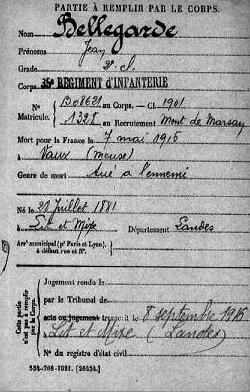 PARTIE À REMPLIR PAR LE CORPS.
Nom Bellegarde
Prénoms Jean
Grade 2e cl.
Corps 35e RÉGIMENT d'INFANTERIE
N° au Corps. — Cl. 1901
Matricule. 1328 au Recrutement Mont de Marsan
Mort pour la France le 7 mai 1916
à Vaux (Meuse)
Genre de mort Tué à l'ennemi
Né le 21 Juillet 1881
à Lit et Mixe Département Landes
Arrt municipal (pr Paris et Lyon),
à défaut rue et N°.
Cette partie
n'est pas à remplir
par le Corps.
Jugement rendu le
par le Tribunal de
acte ou jugement transcrit le 8 septembre 1916
à Lit et Mixe (Landes)
N° du registre d'état civil
533-708-1921. [26434.]